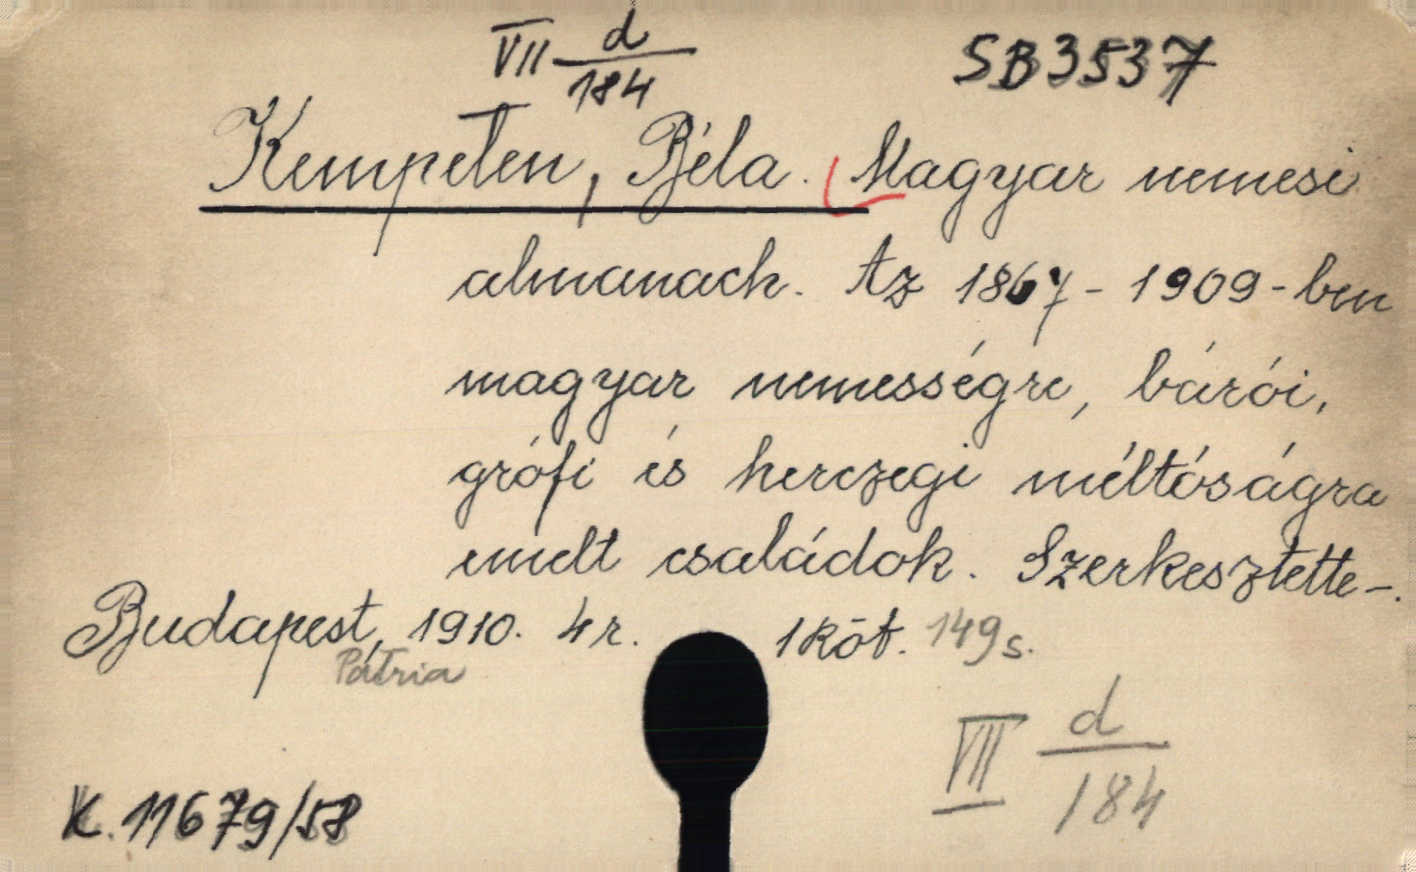 VII d/184
SB3537
Kempelen, Béla. Magyar nemesi
almanach. Az 1867-1909-ben
magyar nemességre, bárói,
grófi és herczegi méltóságra
emelt családok. Szerkesztette-.
Budapest, 1910. 4r. 1 köt. 149 s.
Pátria
VII d/184
K. 11679/58